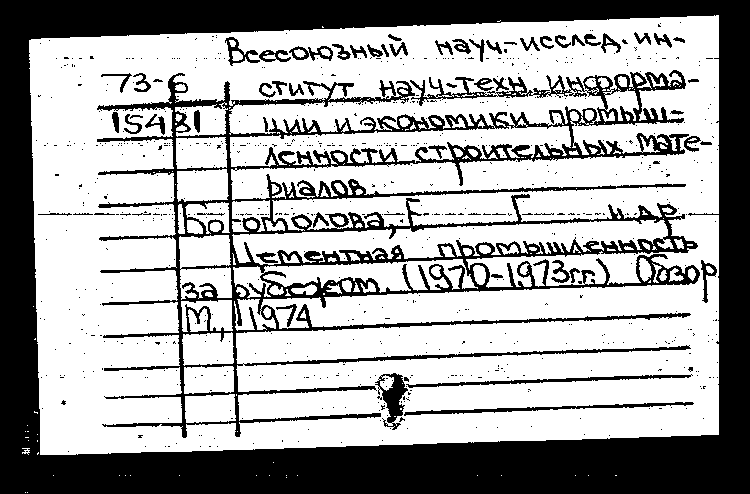 Всесоюзный науч.-исслед. ин-
73-6 ститут науч-техн. информа-
15481 ции и экономики промыш-
ленности строительных мате-
риалов.
Боготолова, Е Г и др
Цементная промышленность
за рубежом. (1970-1973гг.) Обзор
М., 1974